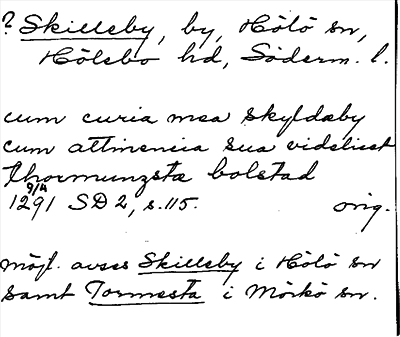 ? Skilleby, by, Hölö sn,
Hölebo hd, Söderm. l.
cum curia mea skyldæby
cum attinencia sua videlicet
thormunzsta bolstad
9/4
1291 SD 2, s. 115. orig.
möjl. avses Skilleby i Hölö sn
samt Tormesta i Mörkö sn.